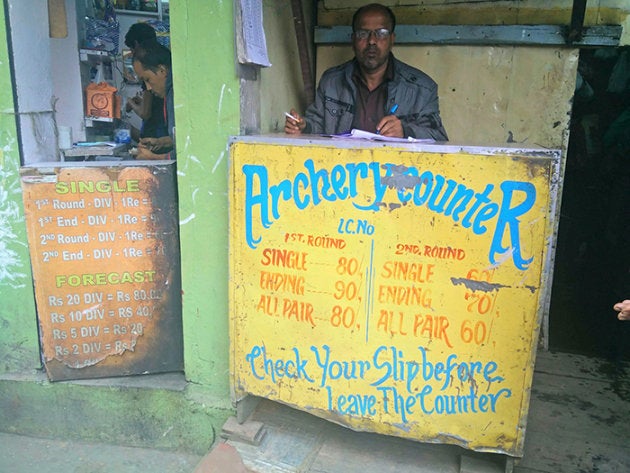 SINGLE
1st Round - DIV - 1Re =
1st End - DIV - 1Re =
2nd Round - DIV - 1Re =
2nd End - DIV - 1Re =
FORECAST
Rs 20 DIV = Rs 80.
Rs 10 DIV = Rs 40/
Rs 5 DIV = Rs 20
Rs 2 DIV = Rs
Archery counteR
LC.No
1ST. ROUND
SINGLE 80/
ENDING 90/
ALL PAIR 80/
2ND. ROUND
SINGLE 60/
ENDING 70/
ALL PAIR 60/
Check Your Slip before
Leave The Counter